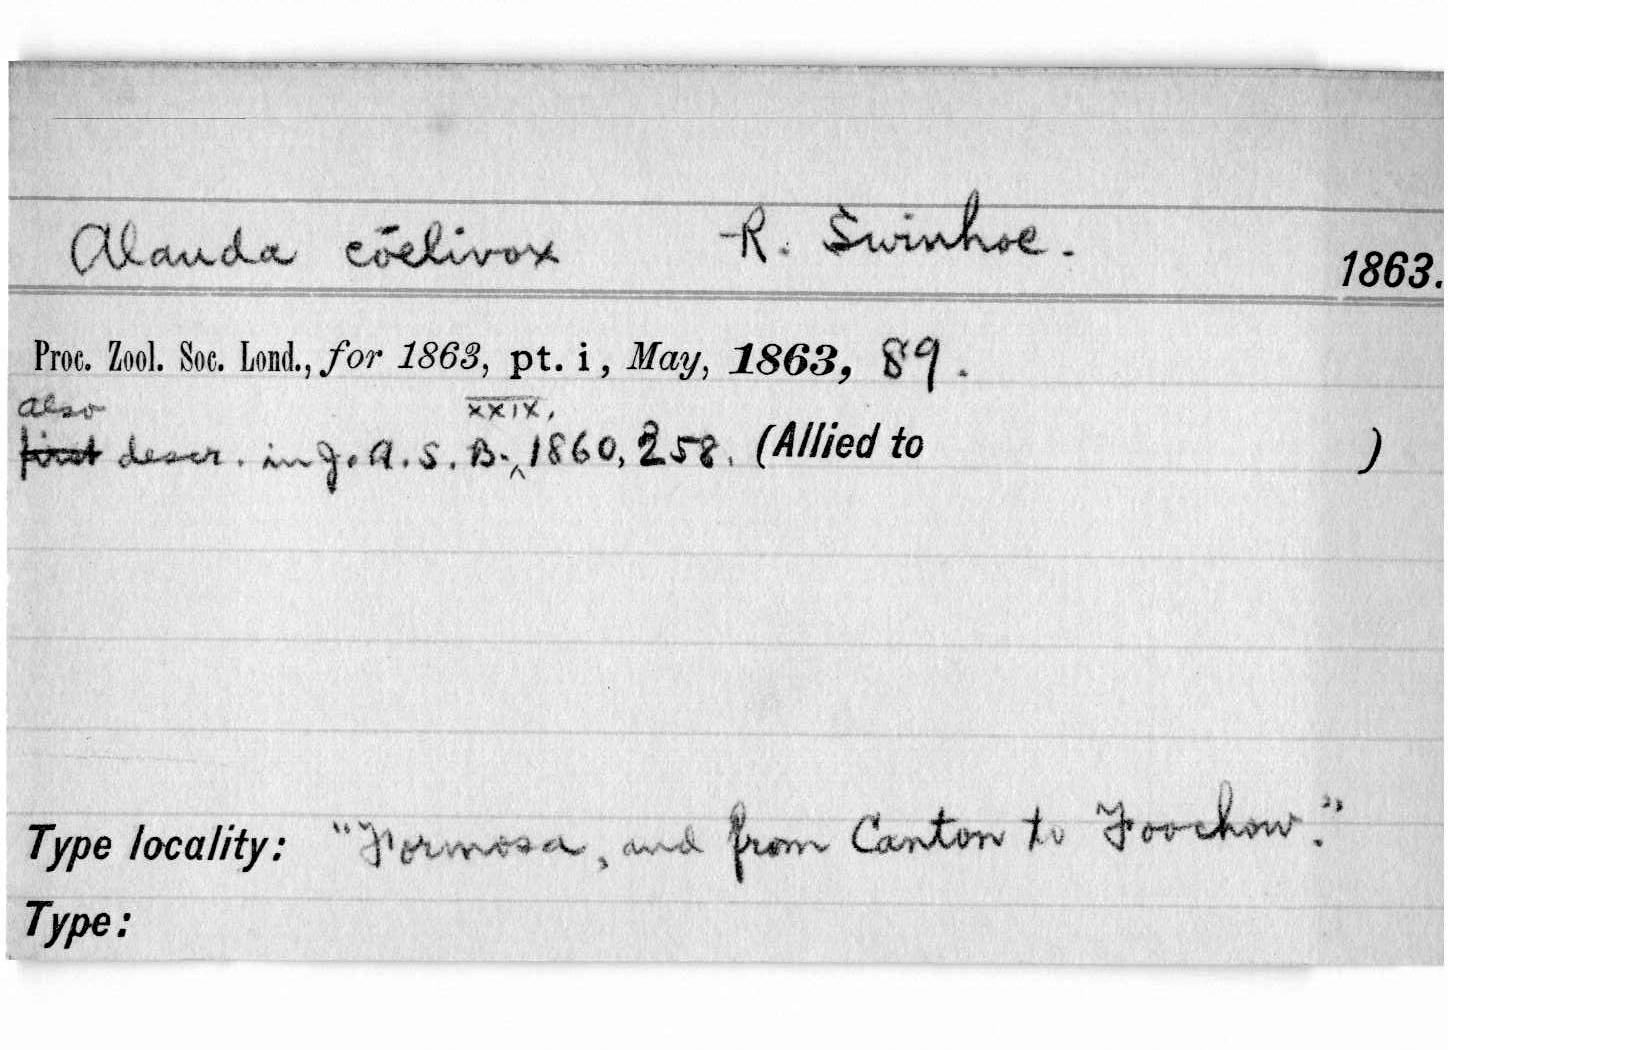 Alauda cōelivox R. Swinhoe. 1863.
Proc. Zool. Soc. Lond., for 1863, pt. i, May, 1863, 89.
also XXIX,
first descr. in J. A. S. B. ‸ 1860, 258. (Allied to )
Type locality: "Formosa, and from Canton to Foochow."
Type: